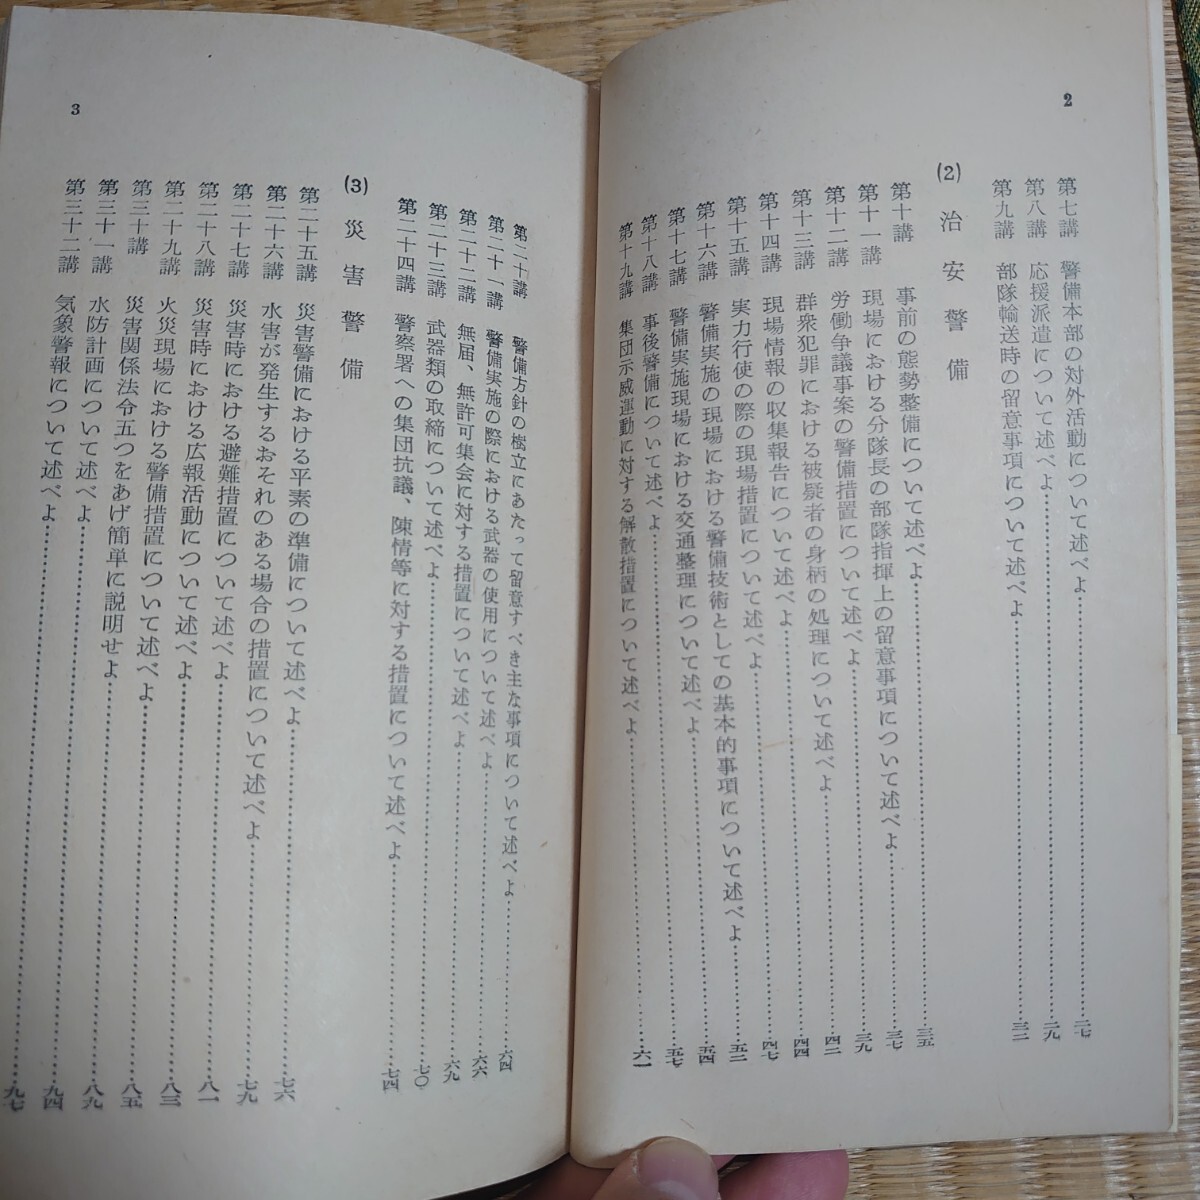 2
第七講 警備本部の対外活動について述べよ……二七
第八講 応援派遣について述べよ……二九
第九講 部隊輸送時の留意事項について述べよ……三二
(2) 治安警備
第十講 事前の態勢整備について述べよ……三五
第十一講 現場における分隊長の部隊指揮上の留意事項について述べよ……三七
第十二講 労働争議事案の警備措置について述べよ……三九
第十三講 群衆犯罪における被疑者の身柄の処理について述べよ……四二
第十四講 現場情報の収集報告について述べよ……四四
第十五講 実力行使の際の現場措置について述べよ……四七
第十六講 警備実施の現場における警備技術としての基本的事項について述べよ……五二
第十七講 警備実施現場における交通整理について述べよ……五四
第十八講 事後警備について述べよ……五七
第十九講 集団示威運動に対する解散措置について述べよ……六一
3
第二十講 警備方針の樹立にあたって留意すべき主な事項について述べよ……六四
第二十一講 警備実施の際における武器の使用について述べよ……六六
第二十二講 無届、無許可集会に対する措置について述べよ……六九
第二十三講 武器類の取締について述べよ……七〇
第二十四講 警察署への集団抗議、陳情等に対する措置について述べよ……七四
(3) 災害警備
第二十五講 災害警備における平素の準備について述べよ……七六
第二十六講 水害が発生するおそれのある場合の措置について述べよ……七九
第二十七講 災害時における避難措置について述べよ……八一
第二十八講 災害時における広報活動について述べよ……八三
第二十九講 火災現場における警備措置について述べよ……八五
第三十講 災害関係法令五つをあげ簡単に説明せよ……八九
第三十一講 水防計画について述べよ……九四
第三十二講 気象警報について述べよ……九七